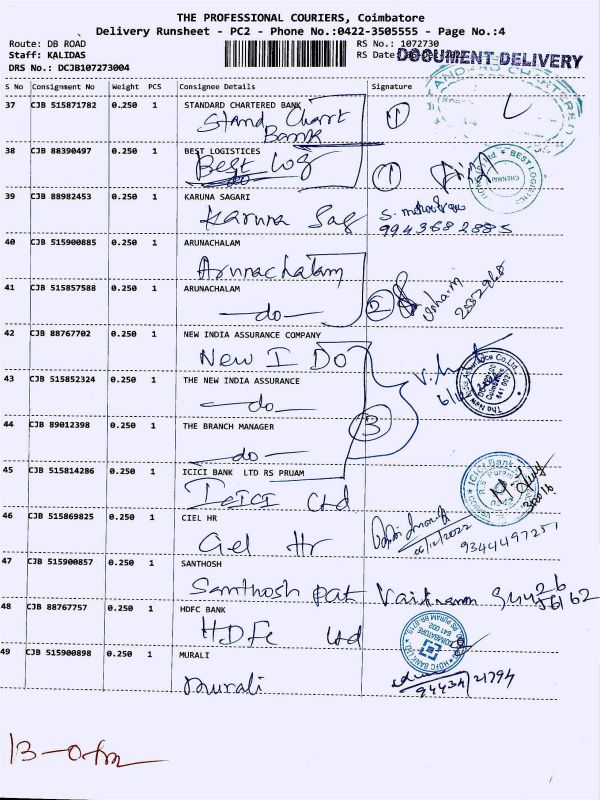 THE PROFESSIONAL COURIERS, Coimbatore
Delivery Runsheet - PC2 - Phone No.:0422-3505555 - Page No.:4
Route: DB ROAD RS No.: 1072730
Staff: KALIDAS RS Date: DOCUMENT-DELIVERY
DRS No.: DCJB107273004
S No Consignment No Weight PCS Consignee Details Signature
37 CJB 515871782 0.250 1 STANDARD CHARTERED BANK
Stand Chart
Bank 1
38 CJB 88390497 0.250 1 BEST LOGISTICES
Best Log 1
do
BEST LOGISTICS
CHENNAI
39 CJB 88982453 0.250 1 KARUNA SAGARI
Karuna Sag
9943682885
40 CJB 515900885 0.250 1 ARUNACHALAM
Arunachalam
41 CJB 515857588 0.250 1 ARUNACHALAM
-do- 2
42 CJB 88767702 0.250 1 NEW INDIA ASSURANCE COMPANY
New I Do
43 CJB 515852324 0.250 1 THE NEW INDIA ASSURANCE
-do-
44 CJB 89012398 0.250 1 THE BRANCH MANAGER
-do- 3
45 CJB 515814286 0.250 1 ICICI BANK LTD RS PRUAM
Icici Ltd
ICICI Bank
46 CJB 515869825 0.250 1 CIEL HR
Ciel Hr
06/12/2022 9344497251
47 CJB 515900857 0.250 1 SANTHOSH
Santhosh pat
48 CJB 88767757 0.250 1 HDFC BANK
HDFC Ltd
49 CJB 515900898 0.250 1 MURALI
Murali
94434/21794